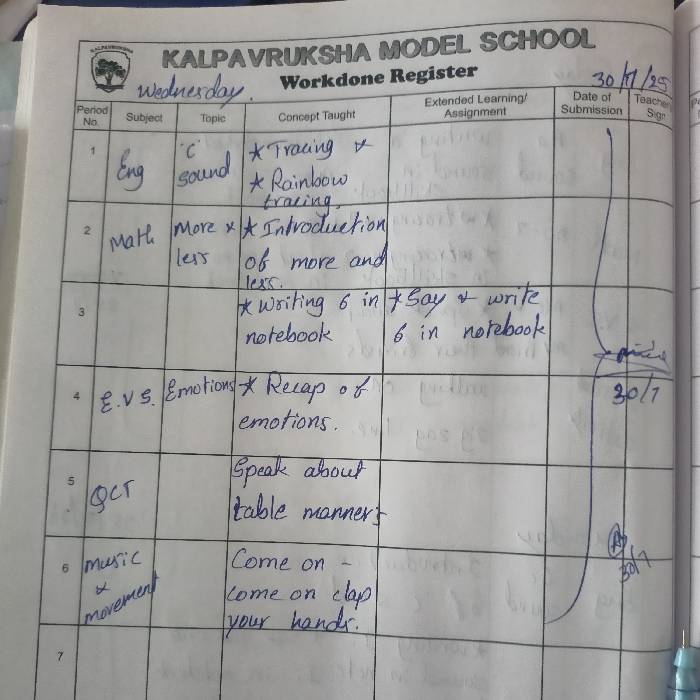 KALPAVRUKSHA
KALPAVRUKSHA MODEL SCHOOL
Workdone Register
Wednesday.
30/7/25
Period No.
Subject
Topic
Concept Taught
Extended Learning/
Assignment
Date of
Submission
Teacher
Sign
1
Eng
'C'
sound
* Tracing
* Rainbow
tracing.
2
Math
More &
less
* Introduction
of more and
less.
3
* Writing 6 in
notebook
* Say & write
6 in notebook
30/7
4
E.V.S.
Emotions
* Recap of
emotions.
5
QCT
Speak about
table manners
6
music
&
movement
Come on -
come on clap
your hands.
30/7
7